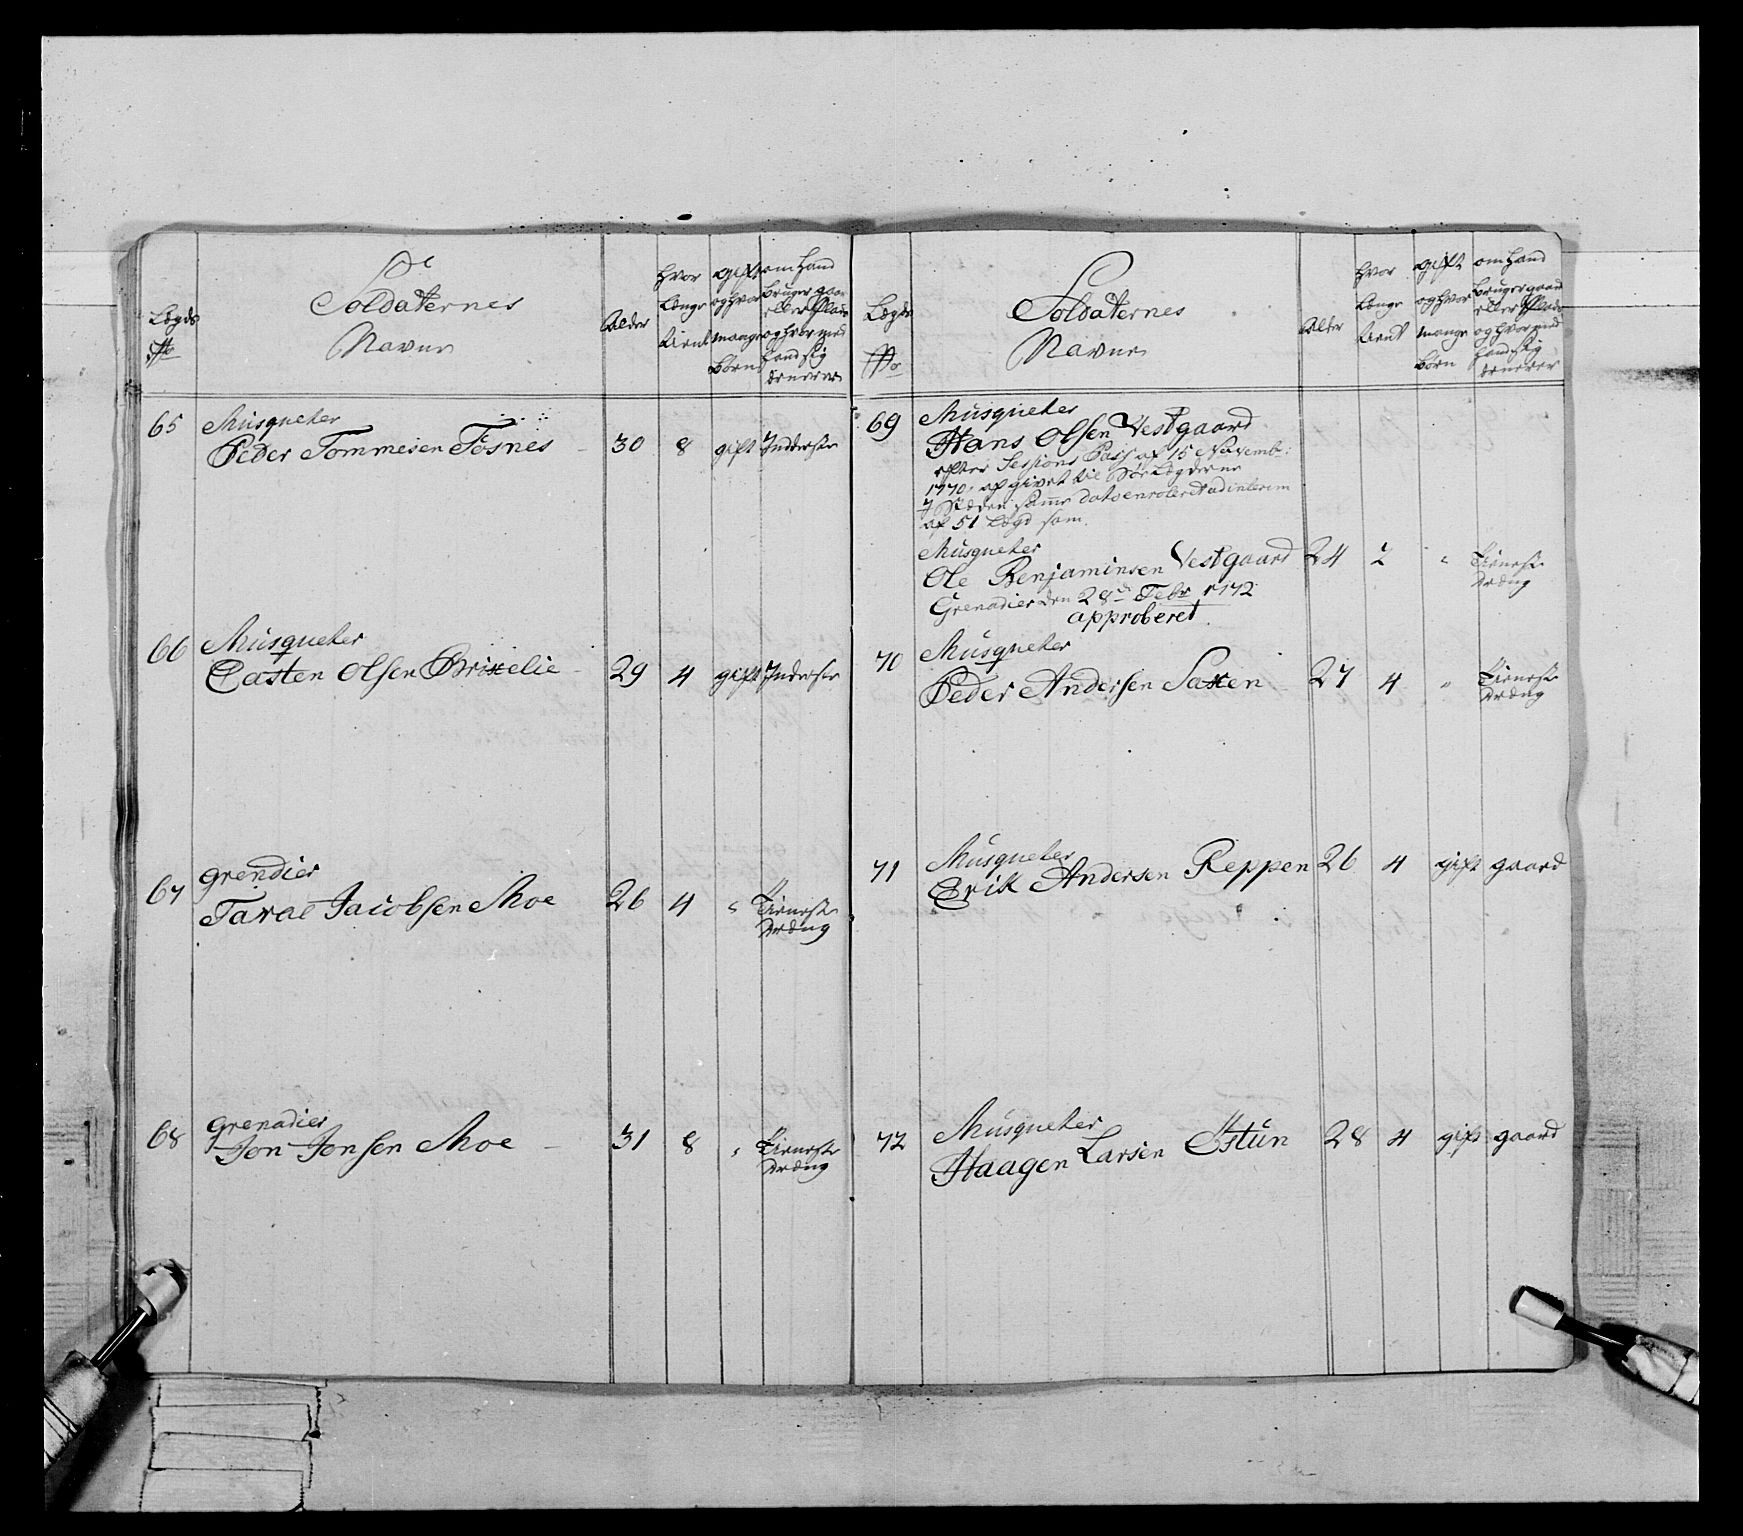 Lægds
No
Soldaternes
Navne
Alder
hvor
længe
tient
gift
og hvor
mange
børn
om hand
bruger gaar
eller Plads
og hvor med
hand sig
ernerer
65
Musqueter
Peder Tommesen Fosnes
30
8
gift
Inderste
66
Musqueter
Casten Olsen Brixelie
29
4
gift
Inderste
67
grendier
Taral Jacobsen Moe
26
4
"
tieneste
dræng
68
grenadier
Jon Jonsen Moe
31
8
"
tieneste
dræng
Lægds
No
Soldaternes
Navne
Alder
hvor
længe
tient
gift
og hvor
mange
børn
om hand
bruger gaard
eller Plads
og hvor med
hand sig
ernerer
69
Musqueter
Hans Olsen Vestgaard
efter Sessions Pass af 15 Novemb:
1770. af givet til Søe Lægderne
I Stæden samme dato enroleret ad interim
af 51 Lægd som
Musqueter
Ole Benjaminsen Vestgaard
24
2
"
tieneste
dræng
Grenadier den 28d Febr 1772
approberet.
70
Musqueter
Peder Andersen Saxen
27
4
"
tieneste
dræng
71
Musqueter
Erik Andersen Reppen
26
4
gift
gaard
72
Musqueter
Haagen Larsen Østun
28
4
gift
gaard